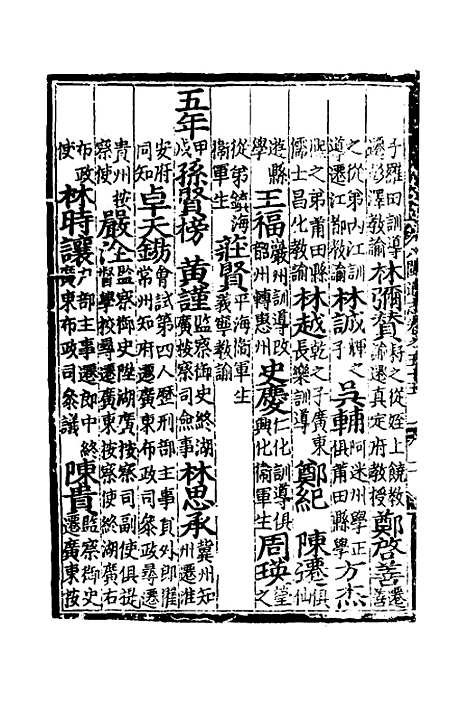 子羅田訓導
遷彭澤教諭
林彌贊
詩之從姪上饒教
諭遷真定府教授
鄭啓善
遷
善
之從弟內江訓
導遷江都教諭
林誠
輝之
子
吳輔
阿迷州學正
俱莆田縣學
方杰
熙之弟莆田縣
儒士昌化教諭
林越
乾之子廣東
長樂訓導
鄭紀
陳遷
俱
仙
遊縣
學
王福
嚴州訓導改
韶州轉惠州
史慶
仁化訓導俱
興化衞軍生
周瑛
瑩
之
從弟鎮海
衞軍生
莊賢
平海衞軍生
義烏教諭
五年
甲
戌
孫賢榜
黃謹
監察御史終湖
廣按察司僉事
林思承
冀州知
州遷淮
安府
同知
卓天錫
會試第四人歷刑部主事員外郎
常州知府遷廣東布政司叅政尋遷
貴州按
察使
嚴洤
監察御史陞湖廣按察司副使俱提
督學校尋遷廣東按察使終湖廣右
布政
使
林時讓
戸部主事遷郎中終
廣東布政司叅議
陳貴
監察御史
遷廣東按